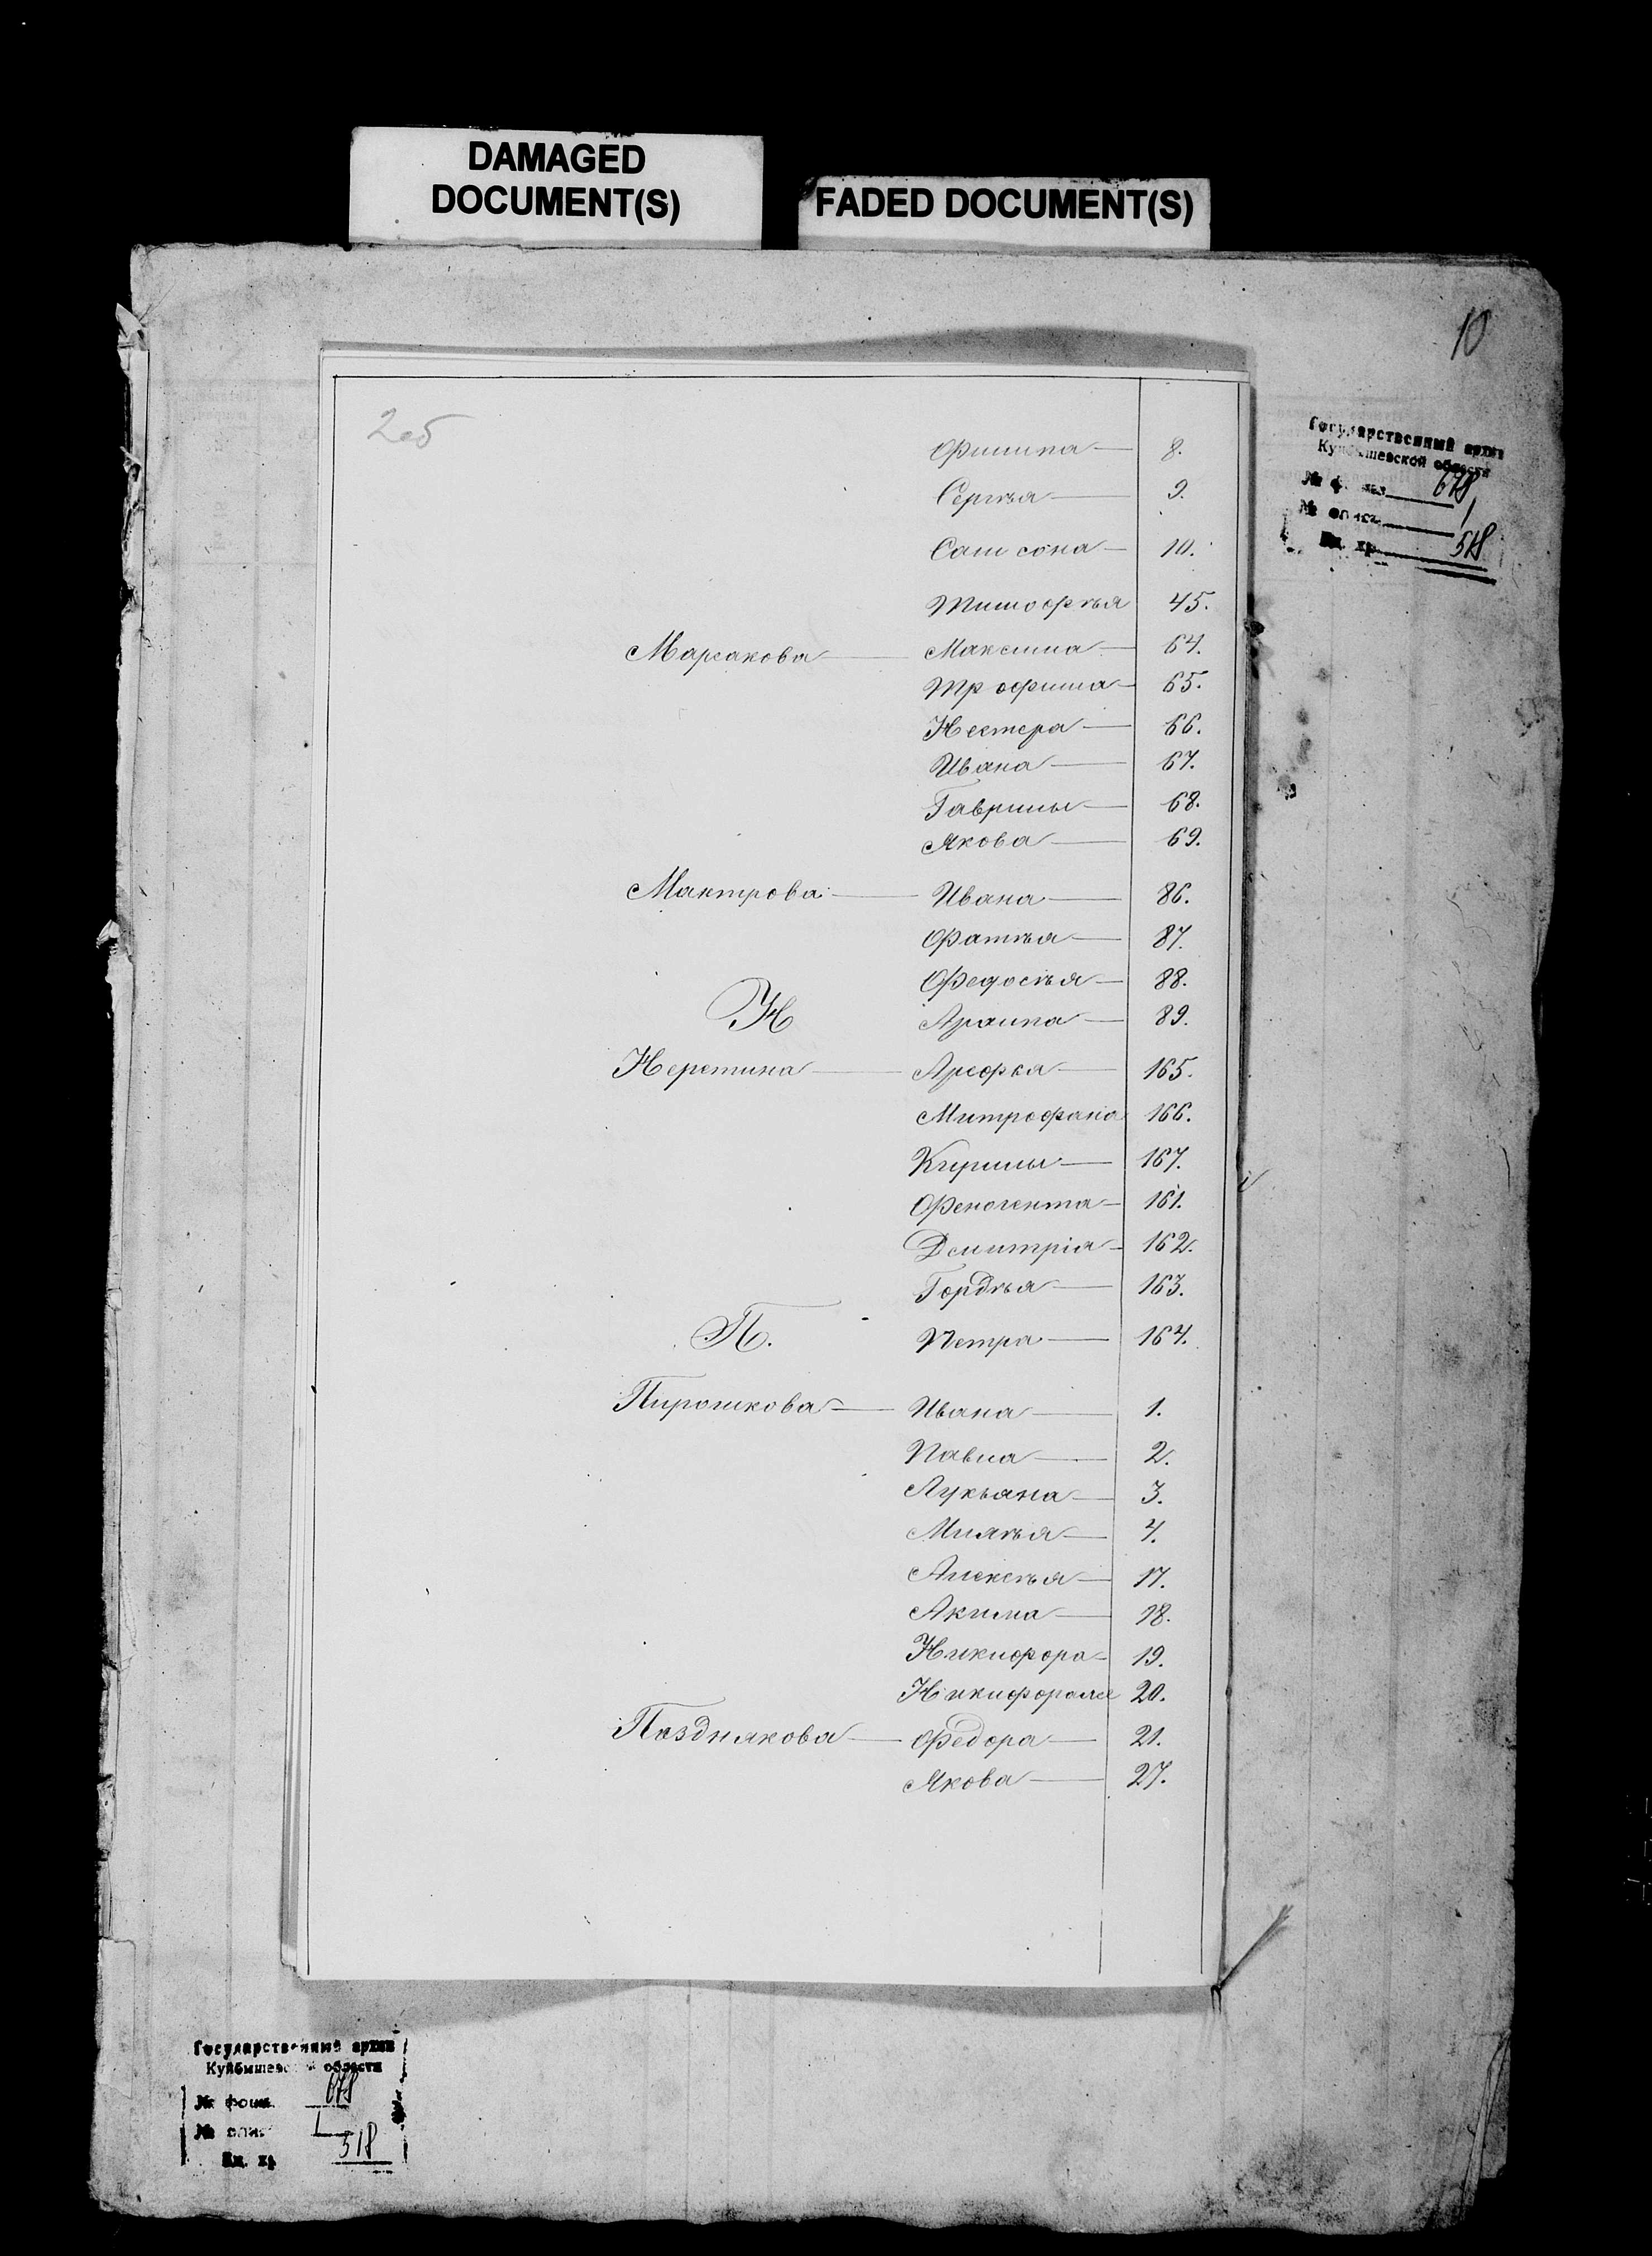 DAMAGED
DOCUMENT(S)
FADED DOCUMENT(S)
10
2об
Государственный архив
Куйбышевской области
№ фонда 678
№ описи 1
Ед. хр. 518
Филипа — 8.
Сергѣя — 9.
Самсона — 10.
Тимофѣя 45.
Марсакова — Максима — 64.
Трофима — 65.
Нестера — 66.
Ивана — 67.
Гаврилы — 68.
Якова — 69.
Мантрова — Ивана — 86.
Фатѣя — 87.
Федосѣя — 88.
Н Архипа — 89.
Неретина — Арефья — 165.
Митрофана 166.
Кирилы — 167.
Феногента — 161.
Дмитрія — 162.
Гордѣя — 163.
П. Петра — 164.
Пирошкова — Ивана — 1.
Павла — 2.
Лукьяна — 3.
Михѣя — 4.
Алексѣя — 17.
Акима — 18.
Никифора — 19.
Никифора же 20.
Позднякова — Федора — 21.
Якова — 27.
Государственный архив
Куйбышевской области
№ фонд. 678
№ опис 1
Ед. хр 518